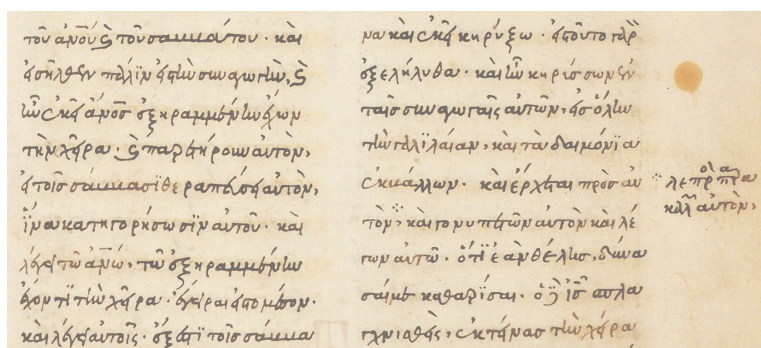 τοῦ ἀν̅ου̅ ϗ τοῦ σαββάτου· καὶ
εἰσῆλθεν πάλϊν εἰς τὴν συναγωγὴν, ϗ
ἦν ἐκεῖ ἄν̅ος̅ ἐξηραμμένην ἔχων
τὴν χεῖρα· ϗ παρετήρουν αὐτὸν,
εἰ τοῖς σάββασϊ θεραπεύσει αὐτὸν,
ἵνα κατηγορήσωσϊν αὐτοῦ· καὶ
λέγει τῶ ἀν̅ω̅, τῶ ἐξηραμμένην
ἔχοντϊ τὴν χεῖρα· ἔγειραι εἰς τὸ μέσον·
καὶ λέγει αὐτοῖς· ἔξεστϊ τοῖς σάββα
να καὶ ἐκεῖ κηρύξω· εἰς τοῦτο γὰρ
ἐξελήλυθα· καὶ ἦν κηρύσσων ἐν
ταῖς συναγωγαῖς αὐτῶν, εἰς ὅλην
τὴν γαλϊλαίαν, καὶ τὰ δαιμόνϊα
ἐκβάλλων. καὶ ἔρχεται πρὸς αὐ
τὸν, καὶ γονυπετῶν αὐτὸν καὶ λέ
γων αὐτῶ· ὅτϊ ἐὰν θέλης, δύνα
σαί με καθαρίσαι· ὁ δὲ ι̅ς̅ σπλα
γχνισθεὶς, ἐκτείνας τὴν χεῖρα
λεπρὸς παρα
καλῶν αὐτὸν,